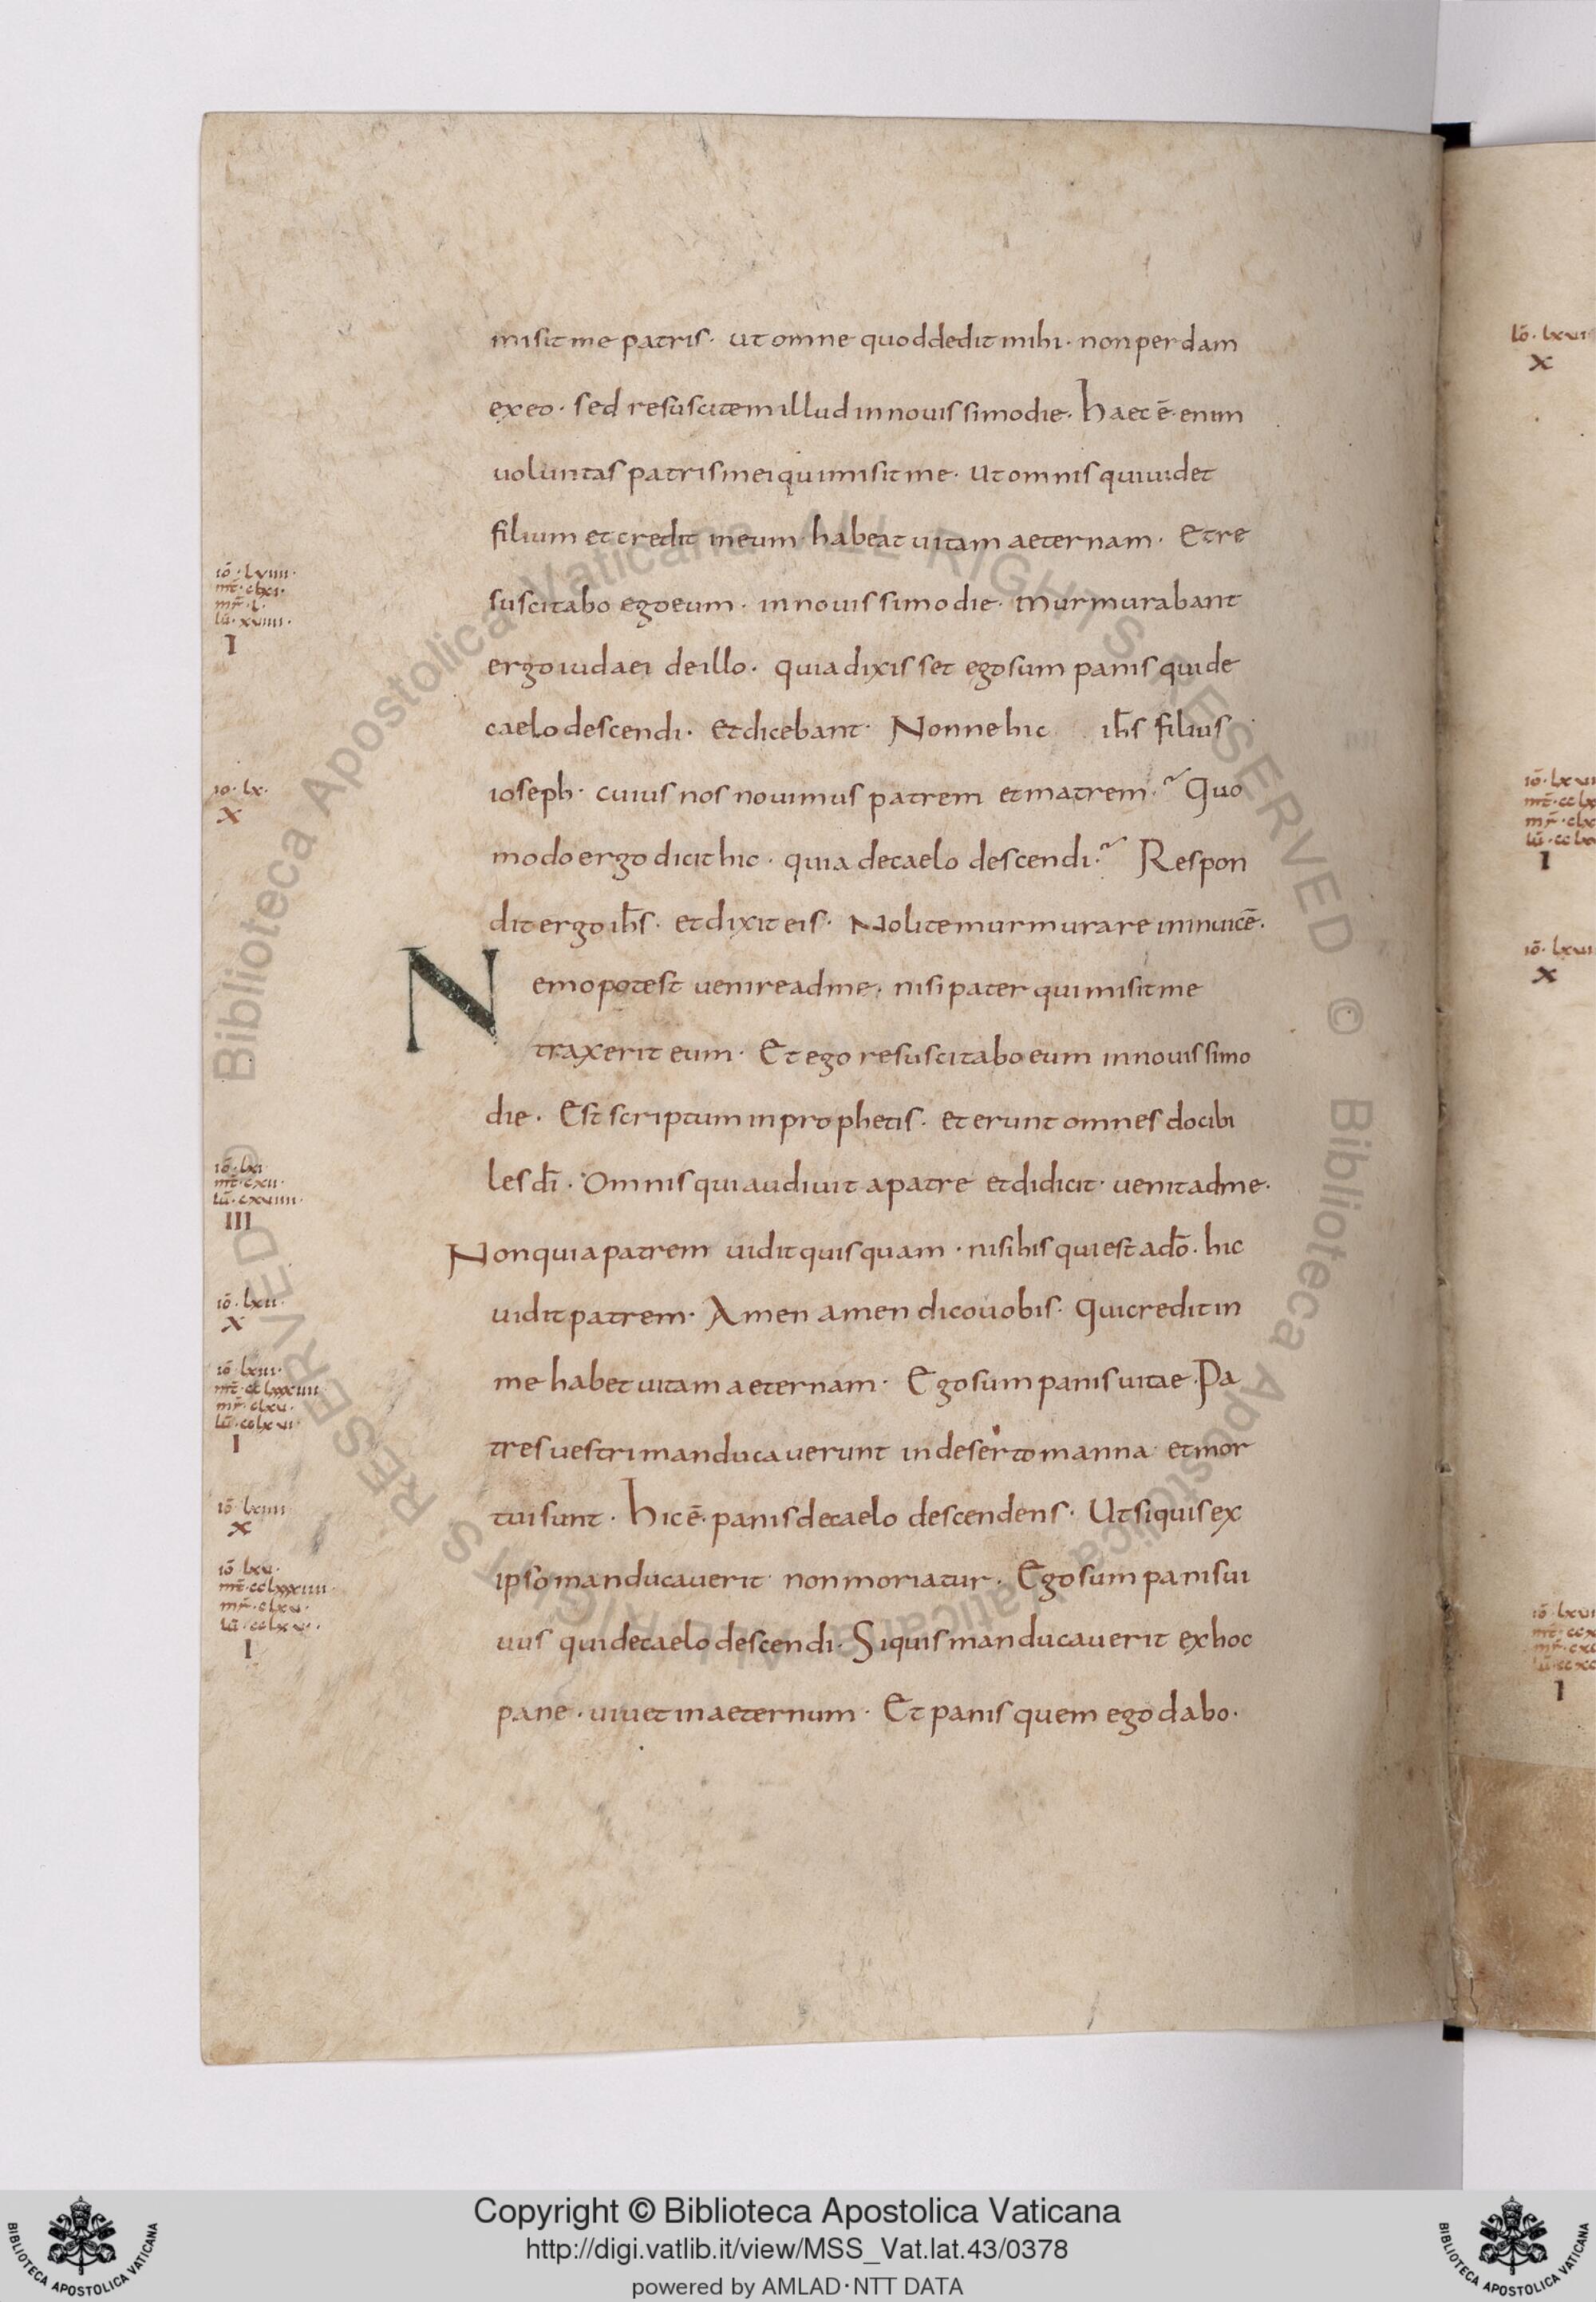 misit me patris · ut omne quod dedit mihi · non perdam
ex eo · sed resuscitem illud in novissimo die · haec ē· enim
voluntas patris mei qui misit me · ut omnis qui videt
filium et credit in eum · habeat vitam aeternam · Et re
suscitabo ego eum · in novissimo die · murmurabant
ergo iudaei de illo · quia dixisset ego sum panis qui de
caelo descendi · et dicebant · Nonne hic ih̄s filius
ioseph · cuius nos novimus patrem et matrem ·? Quo
modo ergo dicit hic · quia de caelo descendi ·? Respon
dit ergo ih̄s · et dixit eis · Nolite murmurare in invicē ·
Nemo potest venire ad me · nisi pater qui misit me
traxerit eum · Et ego resuscitabo eum in novissimo
die · Est scriptum in prophetis · et erunt omnes docibi
les dī · Omnis qui audivit a patre et didicit · venit ad me ·
Non quia patrem vidit quisquam · nisi his qui est a dō · hic
vidit patrem · Amen amen dico vobis · Qui credit in
me habet vitam aeternam · Ego sum panis vitae · Pa
tres vestri manducaverunt in deserto manna · et mor
tui sunt · hic ē· panis de caelo descendens · Ut si quis ex
ipso manducaverit · non moriatur · Ego sum panis vi
vus qui de caelo descendi · Si quis manducaverit ex hoc
pane · vivet in aeternum · Et panis quem ego dabo ·
iō · lviiii ·
mt̄ · clxi ·
mr̄ · l ·
lū · xviiii ·
I
io · lx ·
X
iō · lxi ·
mt̄ · cxii ·
lū · cxviiii ·
III
iō · lxii ·
X
iō · lxiii ·
mt̄ · cclxxxiiii
mr̄ · clxv ·
lū · cclxvi ·
I
iō · lxiiii
X
iō lxv ·
mt̄ · cclxxxiiii ·
mr̄ · clxv ·
lū · cclxvi ·
I
X
I
X
I
© Biblioteca Apostolica Vaticana ALL RIGHTS RESERVED
© Biblioteca Apostolica Vaticana ALL RIGHTS RESERVED
BIBLIOTECA APOSTOLICA VATICANA
Copyright © Biblioteca Apostolica Vaticana
http://digi.vatlib.it/view/MSS_Vat.lat.43/0378
powered by AMLAD·NTT DATA
BIBLIOTECA APOSTOLICA VATICANA